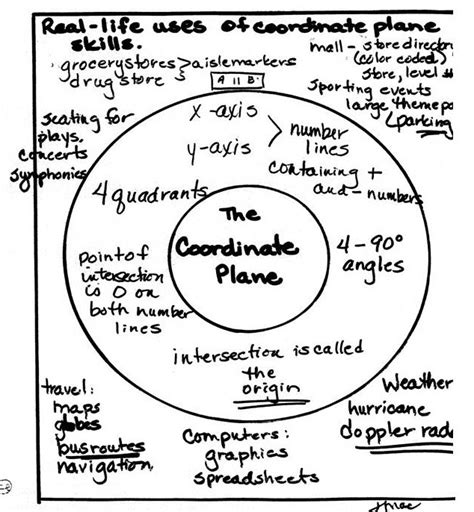 Real-life uses of coordinate plane
skills.
grocery stores > aisle markers
drug store s
A 11 B
mall - store director
(color coded)
store, level #
sporting events
large theme pa
(parking
seating for
plays,
concerts
symphonies
x-axis
y-axis
number
lines
containing +
and - numbers
4 quadrants
The
Coordinate
Plane
4-90°
angles
point of
intersection
is 0 on
both number
lines
intersection is called
the
origin
travel:
maps
globes
bus routes
navigation
Computers:
graphics
spreadsheets
Weather
hurricane
doppler rada